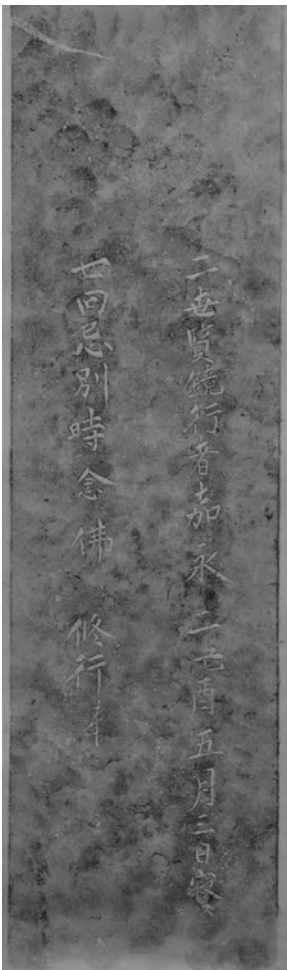 二世賢鏡行者嘉永二己酉五月二日寂
廿回忌別時念佛 修行